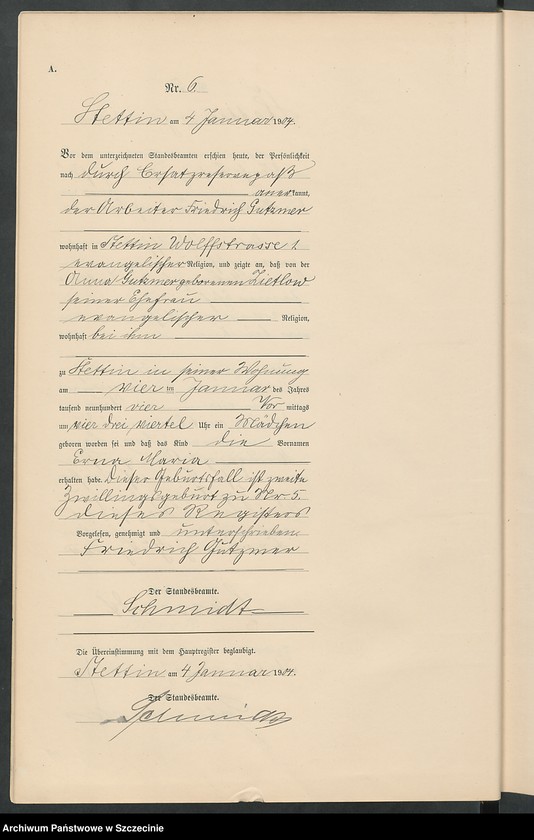 A.
Nr. 6.
Stettin am 4 Januar 1904.
Vor dem unterzeichneten Standesbeamten erschien heute, der Persönlichkeit
nach durch Ersatzreservepaß
anerkannt,
der Arbeiter Friedrich Gutzmer
wohnhaft in Stettin Wolffstrasse 1
evangelischer Religion, und zeigte an, daß von der
Anna Gutzmer geborenen Zietlow
seiner Ehefrau
evangelischer Religion,
wohnhaft bei ihm
zu Stettin in seiner Wohnung
am vier ten Januar des Jahres
tausend neunhundert vier Vor mittags
um vier drei viertel Uhr ein Mädchen
geboren worden sei und daß das Kind die Vornamen
Erna Maria
erhalten habe. Dieser Geburtsfall ist zweite
Zwillingsgeburt zu Nr 5.
dieses Registers
Vorgelesen, genehmigt und unterschrieben.
Friedrich Gutzmer
Der Standesbeamte.
Schmidt
Die Übereinstimmung mit dem Hauptregister beglaubigt.
Stettin am 4 Januar 1904.
Der Standesbeamte.
Schmidt
Archiwum Państwowe w Szczecinie